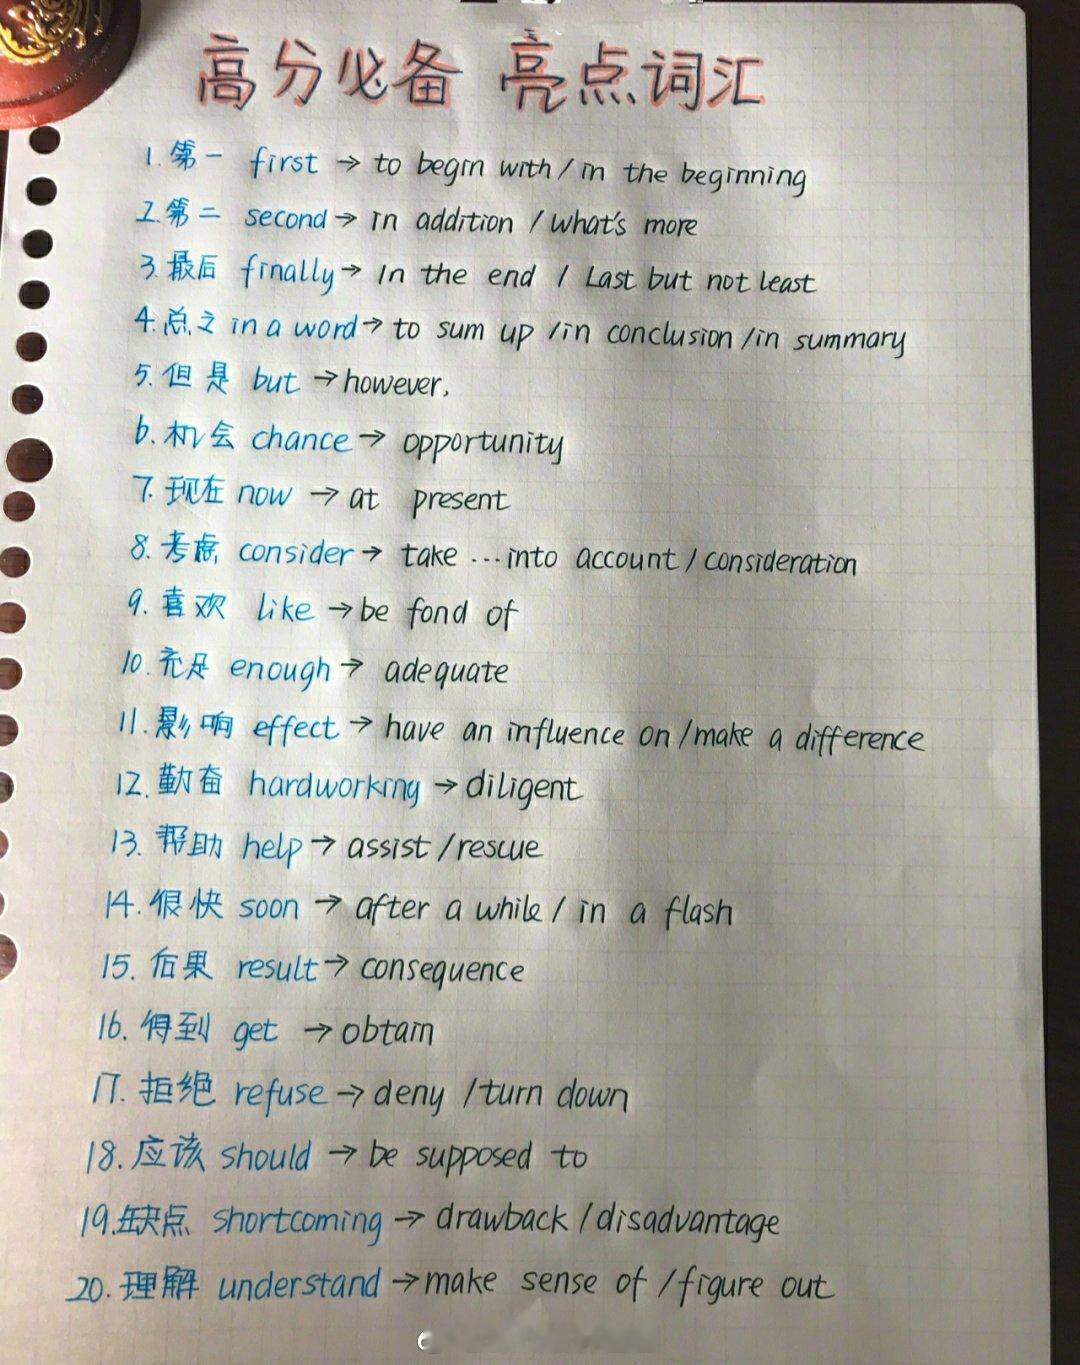 高分必备 亮点词汇
1. 第一 first → to begin with / in the beginning
2. 第二 second → in addition / what's more
3. 最后 finally → In the end / Last but not least
4. 总之 in a word → to sum up / in conclusion / in summary
5. 但是 but → however,
6. 机会 chance → opportunity
7. 现在 now → at present
8. 考虑 consider → take ... into account / consideration
9. 喜欢 like → be fond of
10. 充足 enough → adequate
11. 影响 effect → have an influence on / make a difference
12. 勤奋 hardworking → diligent
13. 帮助 help → assist / rescue
14. 很快 soon → after a while / in a flash
15. 后果 result → consequence
16. 得到 get → obtain
17. 拒绝 refuse → deny / turn down
18. 应该 should → be supposed to
19. 缺点 shortcoming → drawback / disadvantage
20. 理解 understand → make sense of / figure out